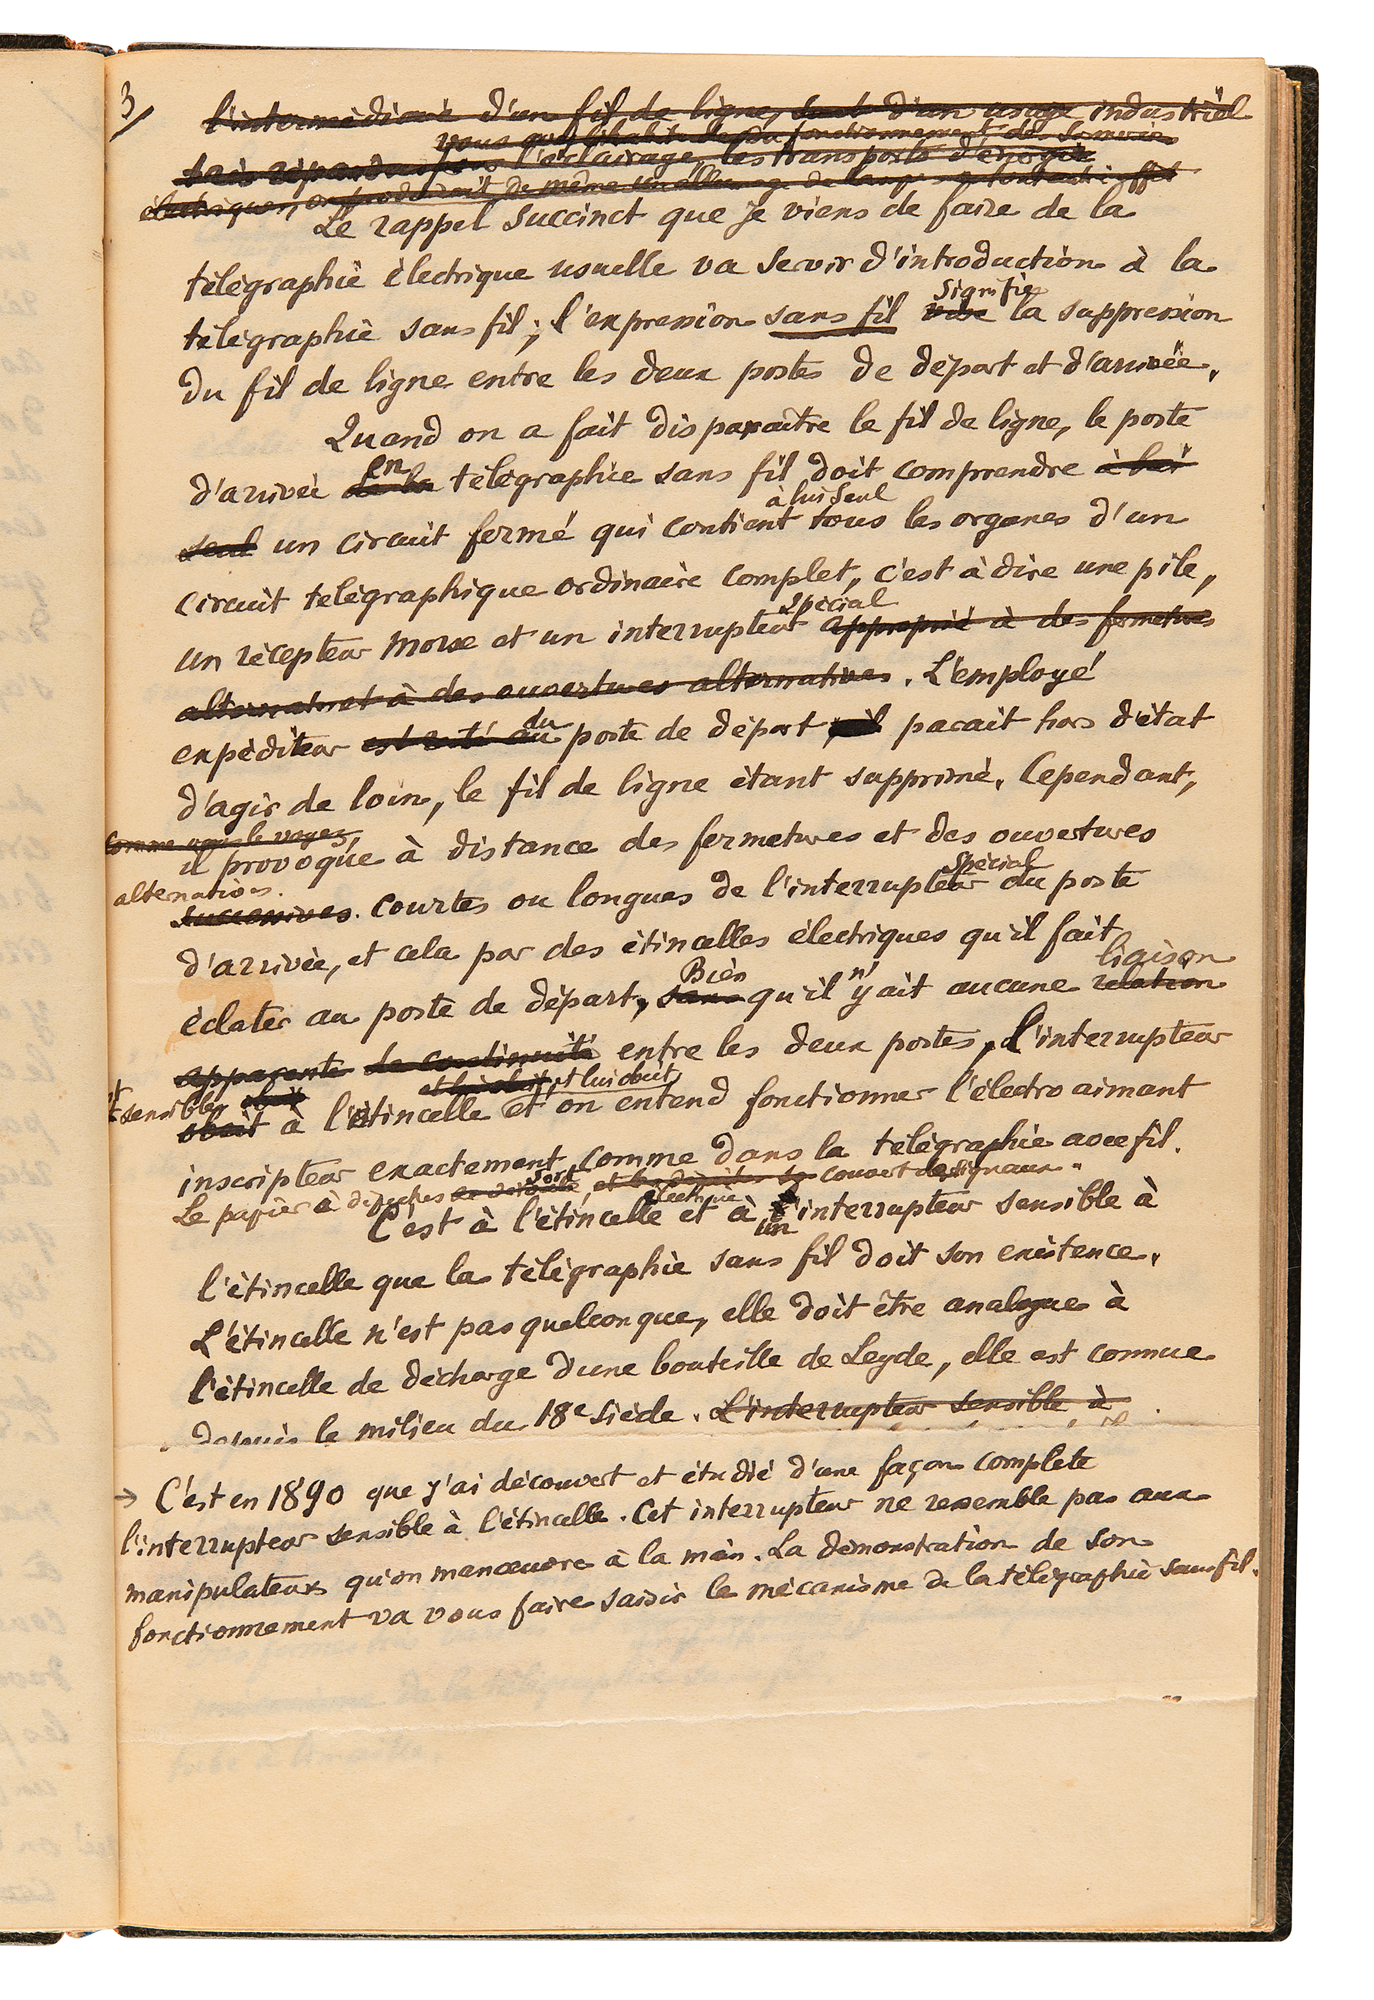 3/
l'intermédiaire d'un fil de ligne, sont d'un usage industriel
très répandu pour l'éclairage, les transports d'énergie
Le rappel succinct que je viens de faire de la
télégraphie électrique usuelle va servir d'introduction à la
signifie
télégraphie sans fil; l'expression sans fil vise la suppression
du fil de ligne entre les deux postes de départ et d'arrivée.
Quand on a fait disparaître le fil de ligne, le poste
en
d'arrivée de la télégraphie sans fil doit comprendre à lui
à lui seul
seul un circuit fermé qui contient tous les organes d'un
circuit télégraphique ordinaire complet, c'est à dire une pile,
spécial
un récepteur Morse et un interrupteur approprié à des fermetures
alternat et à des ouvertures alternatives. L'employé
du
expéditeur est resté au poste de départ, il paraît hors d'état
d'agir de loin, le fil de ligne étant supprimé. Cependant,
comme vous le voyez,
il provoque à distance des fermetures et des ouvertures
alternatives. spécial
successives. courtes ou longues de l'interrupteur du poste
d'arrivée, et cela par des étincelles électriques qu'il fait
Bien n' liaison
éclater au poste de départ, sans qu'il y ait aucune relation
apparente de continuité entre les deux postes, l'interrupteur
est sensible obéit et lui obéit, et lui obéit
obéit à l'étincelle et on entend fonctionner l'électro aimant
inscripteur exactement comme dans la télégraphie avec fil.
Le papier à dépêches se déroule, sort couvert de signaux.
électrique un
C'est à l'étincelle et à l'interrupteur sensible à
l'étincelle que la télégraphie sans fil doit son existence.
L'étincelle n'est pas quelconque, elle doit être analogue à
l'étincelle de décharge d'une bouteille de Leyde, elle est connue
depuis le milieu du 18e siècle. L'interrupteur sensible à
→ C'est en 1890 que j'ai découvert et étudié d'une façon complète
l'interrupteur sensible à l'étincelle. Cet interrupteur ne ressemble pas aux
manipulateurs qu'on manoeuvre à la main. La démonstration de son
fonctionnement va vous faire saisir le mécanisme de la télégraphie sans fil.